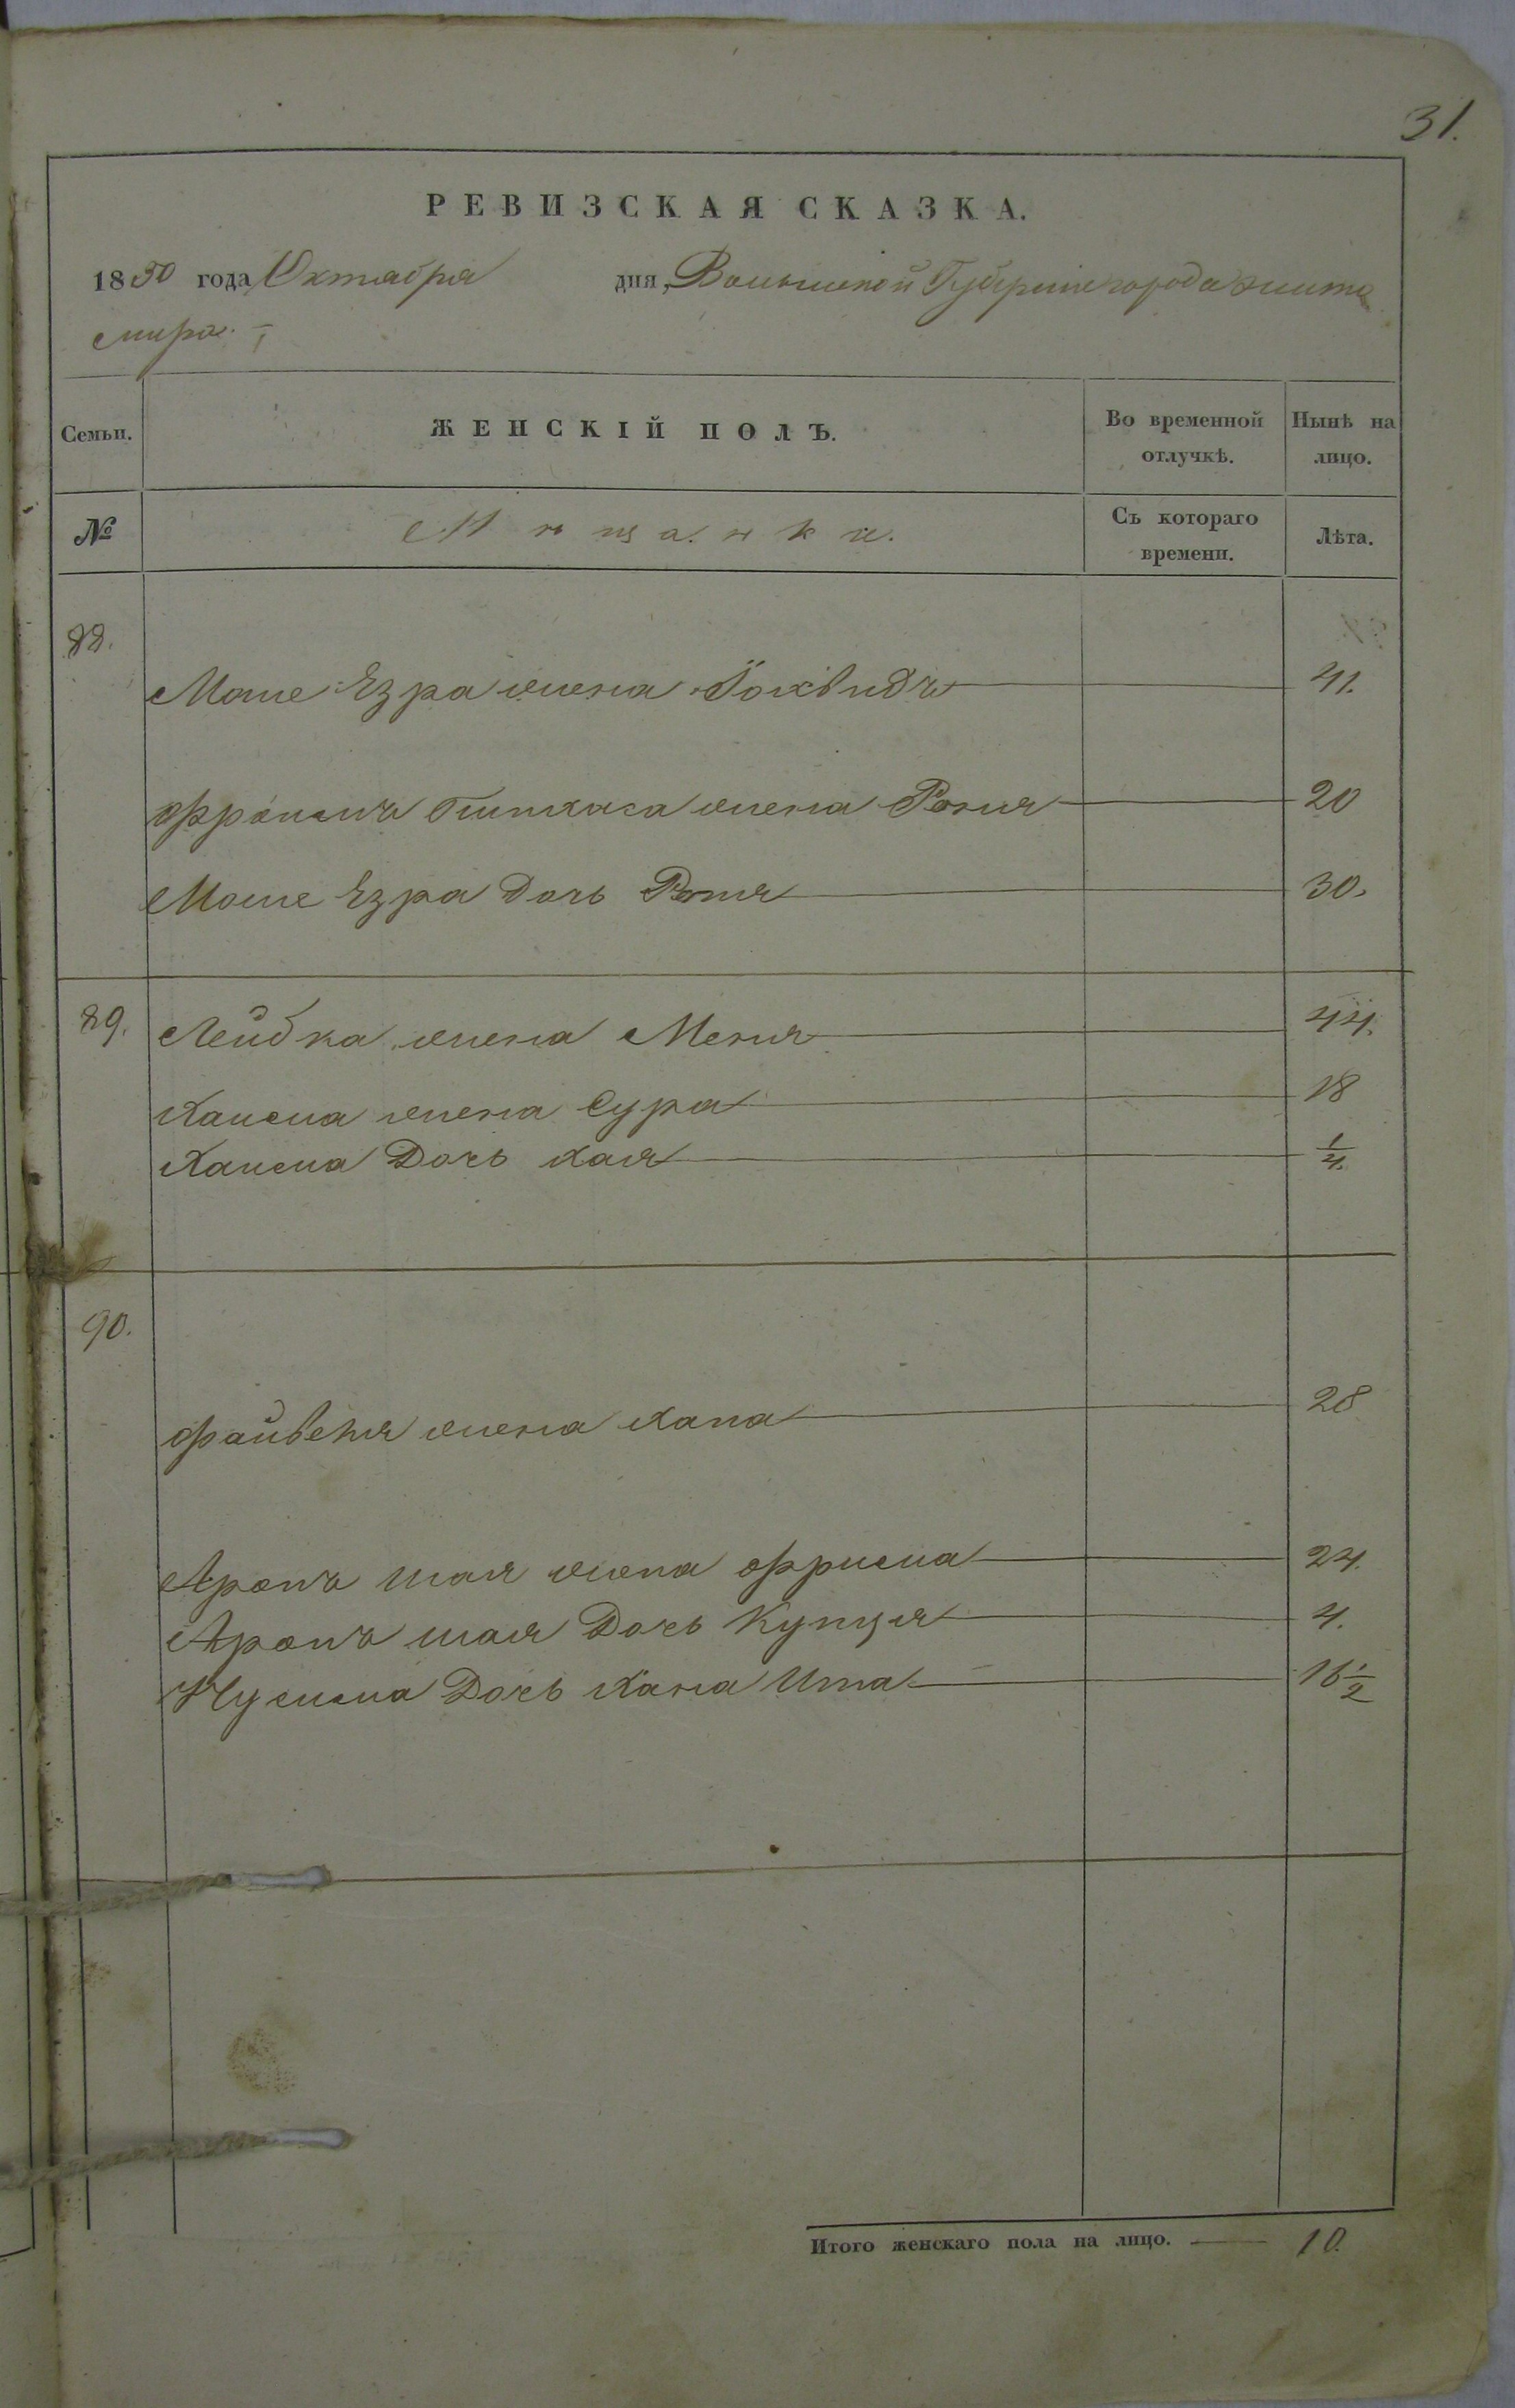 31.
РЕВИЗСКАЯ СКАЗКА.
1850 года Октября дня, Волынской Губерніи города Жито
мира.
Семьи. ЖЕНСКІЙ ПОЛЪ. Во временной отлучкѣ. Нынѣ на лицо.
№ Мѣщанки. Съ котораго времени. Лѣта.
88.
Моше Езра жена Іохвидъ 41.
Пинхаса жена Рохля 20
Моше Езра Дочь 30.
89. Лейбка жена Меня 44.
Хаима жена Сура 18
Хаима Дочь Хая 1/4.
90.
Файвеля жена Хана 28
Аронъ Шая жена Фрима 24.
Аронъ Шая Дочь 4.
Дочь Хана Ита 16 1/2
Итого женскаго пола на лицо. 10.